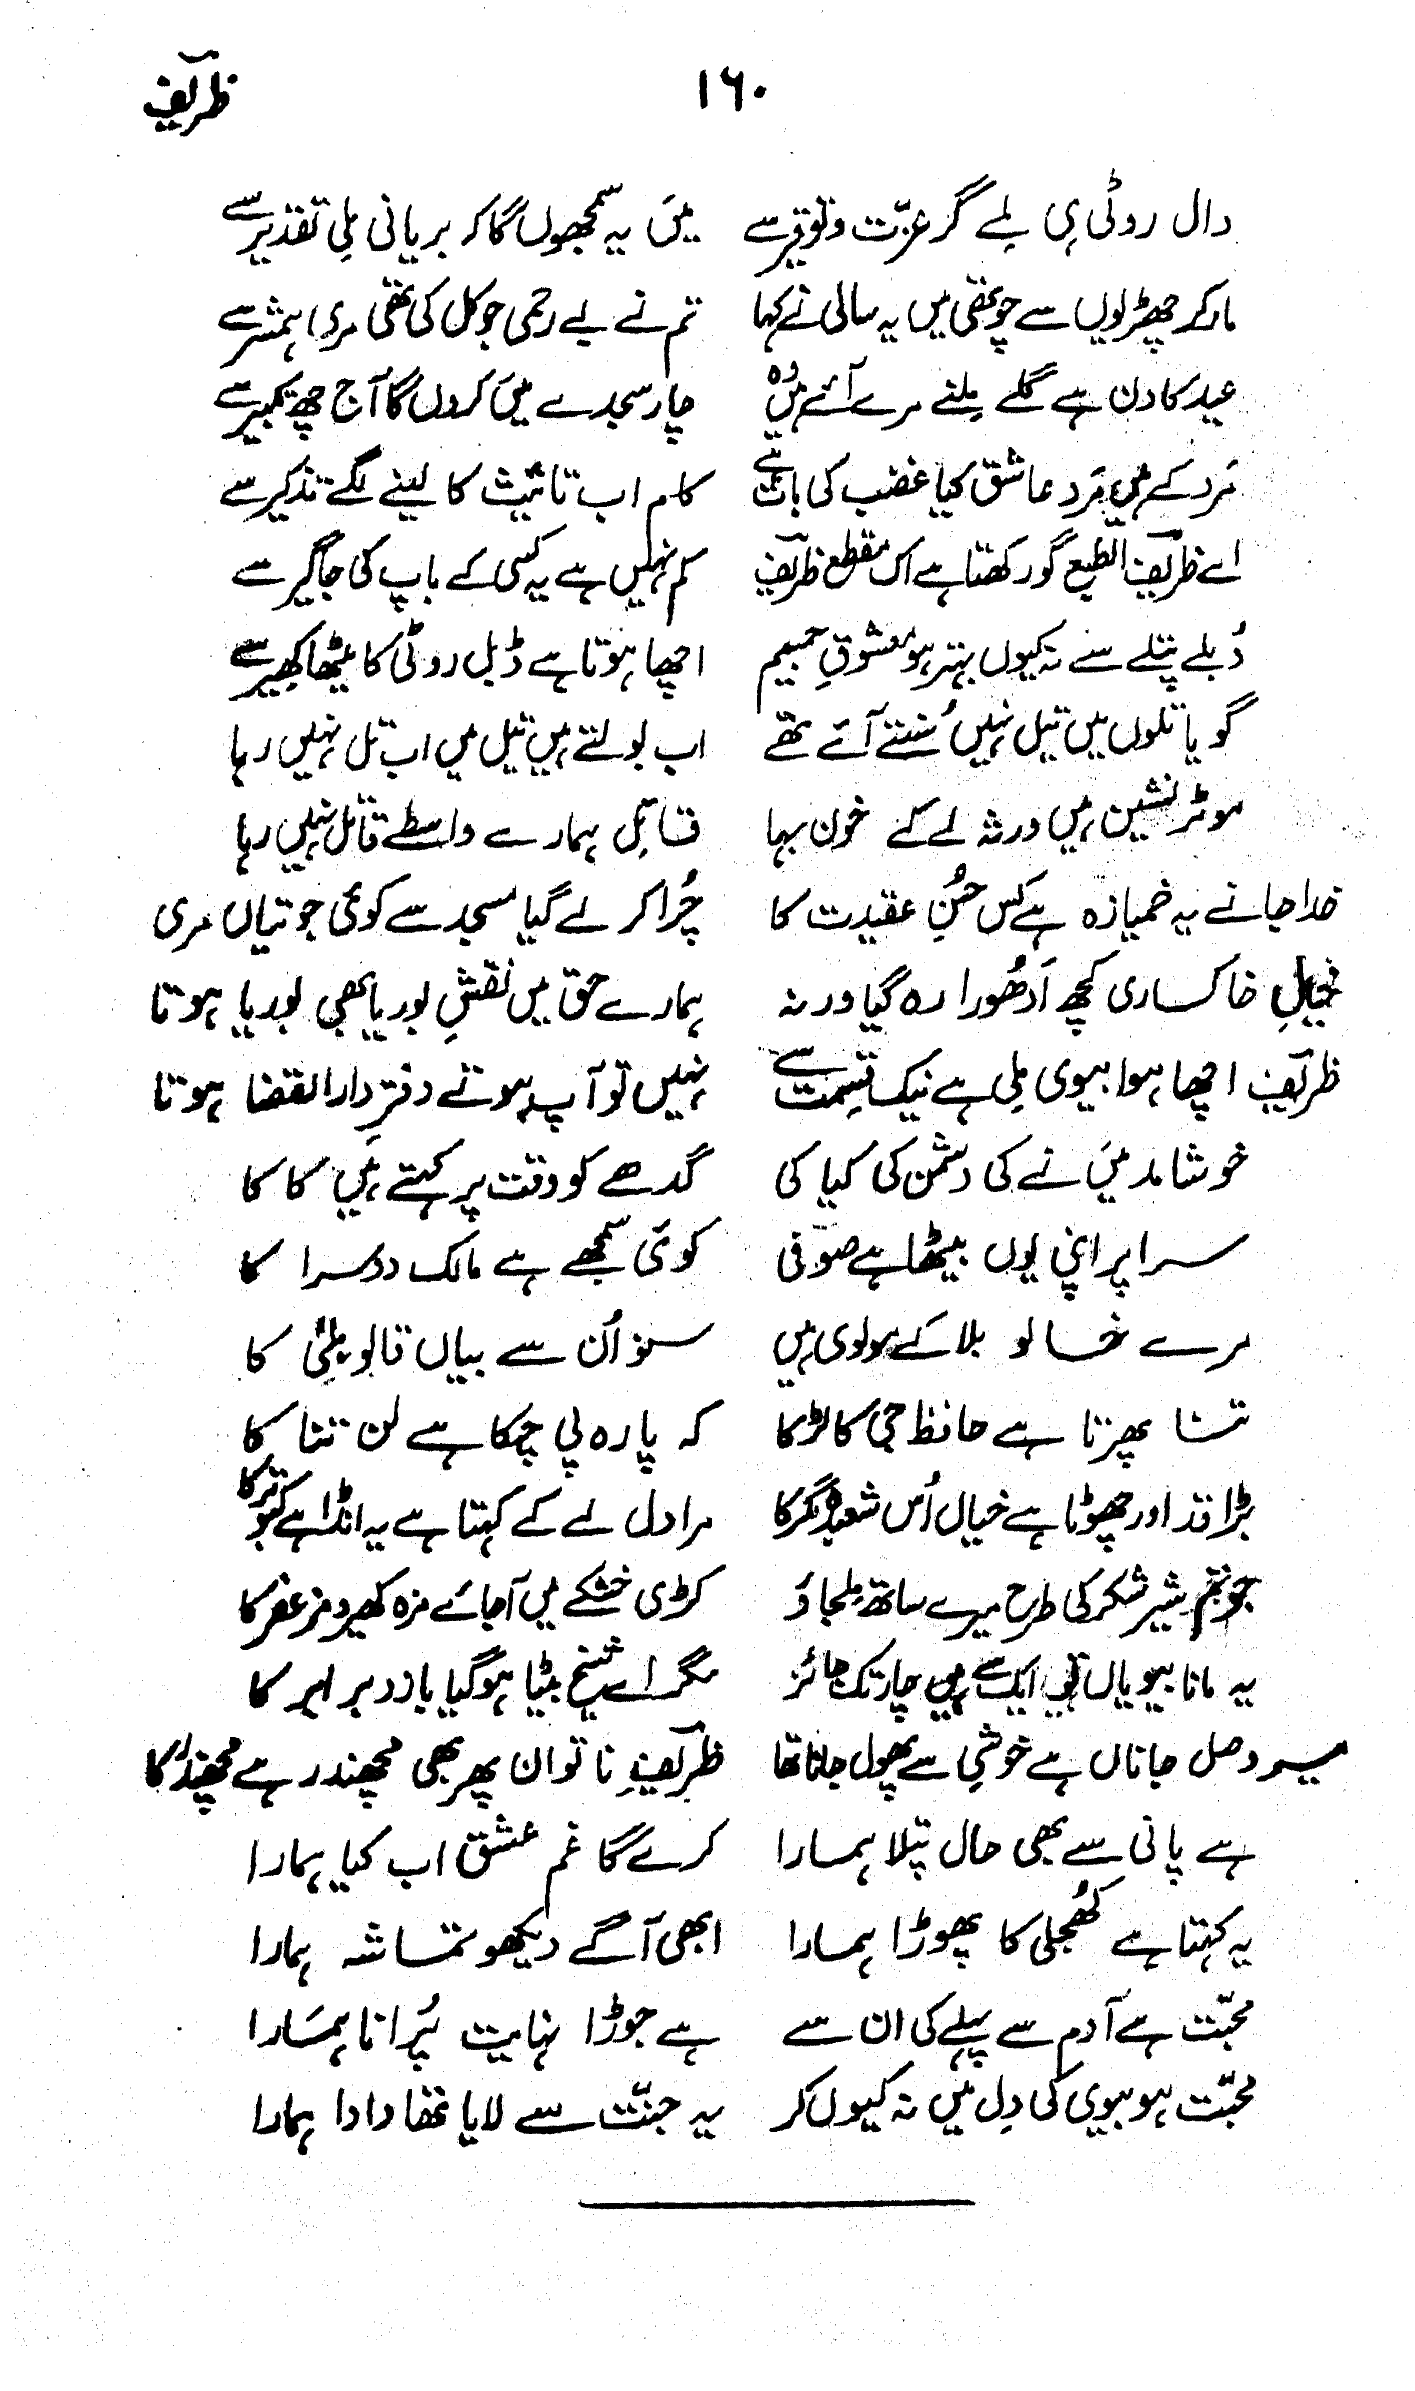 ظریف ۱۶۰
دال روٹی ہی ملے گر عزّت و توقیر سے میں یہ سمجھوں گا کہ بریانی ملی تقدیر سے
مار کر چھڑیوں سے چوتھی میں یہ سالی نے کہا تم نے بے رحمی جو کل کی تھی مری ہمشیر سے
عید کا دن ہے گلے ملنے مرے آئے ہیں وہ چار سجدے میں کروں گا آج چھ تکبیر سے
مَرد کے ہیں مَرد عاشق کیا غضب کی بات ہے کام اب تانیث کا لینے لگے تذکیر سے
اے ظریف الطبع گو رکھتا ہے اک مقطع ظریف کم نہیں ہے یہ کسی کے باپ کی جاگیر سے
دُبلے پتلے سے نہ کیوں بہتر ہو معشوقِ جسیم اچھا ہوتا ہے ڈبل روٹی کا میٹھا کھیر سے
گویا تلوں میں تیل نہیں سُنتے آئے تھے اب بولتے ہیں تیل میں اب تل نہیں رہا
موٹر نشین ہیں ورثہ لے کے خون بہا قاتل ہمارے واسطے قاتل نہیں رہا
خدا جانے یہ خمیازہ ہے کس حُسنِ عقیدت کا چُرا کر لے گیا مسجد سے کوئی جوتیاں مری
خیالِ خاکساری کچھ اَدھُورا رہ گیا ورنہ ہمارے حق میں نقشِ بوریا بھی بوریا ہوتا
ظریف اچھا ہوا بیوی ملی ہے نیک قسمت سے نہیں تو آپ ہوتے دفترِ دارالقضا ہوتا
خوشامد میں نے کی دشمن کی کیا کی گدھے کو وقت پر کہتے ہیں کاکا
سرا پر اپنی یوں بیٹھا ہے صوفی کوئی سمجھے ہے مالک دوسرا کا
مرے خالو بلا کے مولوی ہیں سنو اُن سے بیاں قالو بلیٰ کا
تنتا پھرتا ہے حافظ جی کا لڑکا کہ پارہ پی چکا ہے لن تنا کا
بڑا قد اور چھوٹا ہے خیال اُس شعبدہ گر کا مرا دل لے کے کہتا ہے یہ انڈا ہے کبوتر کا
جو تم شیر شکر کی طرح میرے ساتھ مل جاؤ کڑی خشکے میں آجائے مزہ کھیر و مزعفر کا
یہ مانا بیویاں ایک سے ہیں چار تک جائز مگر اے شیخ بٹیا ہوگیا بارد برابر کا
میسر وصل جاناں ہے خوشی سے پھول جانا تھا ظریفِ ناتوان پھر بھی مچھندر ہے مچھندر کا
ہے پانی سے بھی حال پتلا ہمارا کرے گا غم عشق اب کیا ہمارا
یہ کہتا ہے کھُجلی کا پھوڑا ہمارا ابھی آگے دیکھو تماشہ ہمارا
محبّت ہے آدم سے پہلے کی ان سے ہے جوڑا نہایت پُرانا ہمارا
محبّت ہو بیوی کی دِل میں نہ کیوں کر یہ جنّت سے لایا تھا دادا ہمارا